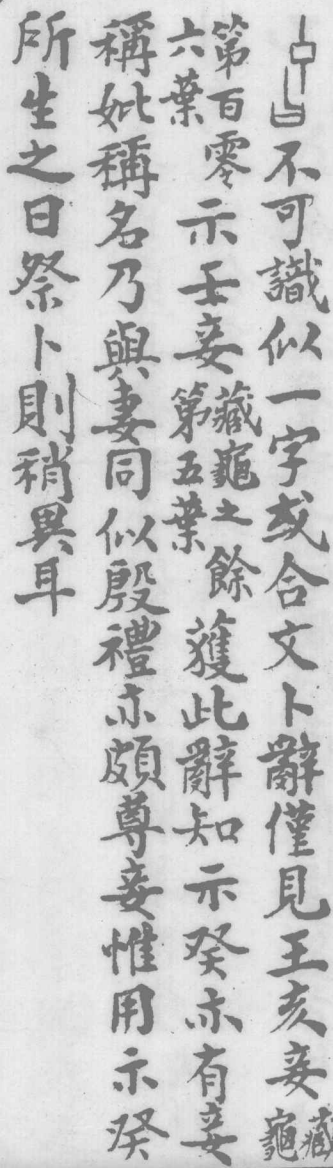 不可識似一字或合文卜辭僅見王亥妾藏龜
第百零六葉示壬妾藏龜之餘第五葉獲此辭知示癸亦有妾
稱妣稱名乃與妻同似殷禮亦頗尊妾惟用示癸
所生之日祭卜則稍異耳